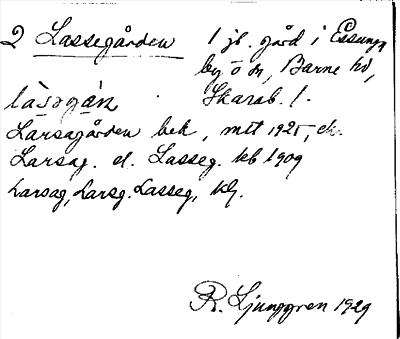 2 Lassegården 1 jb. gård i Essunga
by o sn, Barne hd,
làsəgán Skarab. l.
Larsagården bek, mtl 1925, ek.
Larsag. el. Lasseg. kb 1909
Larsag, Larsg. Lasseg, klj.
R. Ljunggren 1929